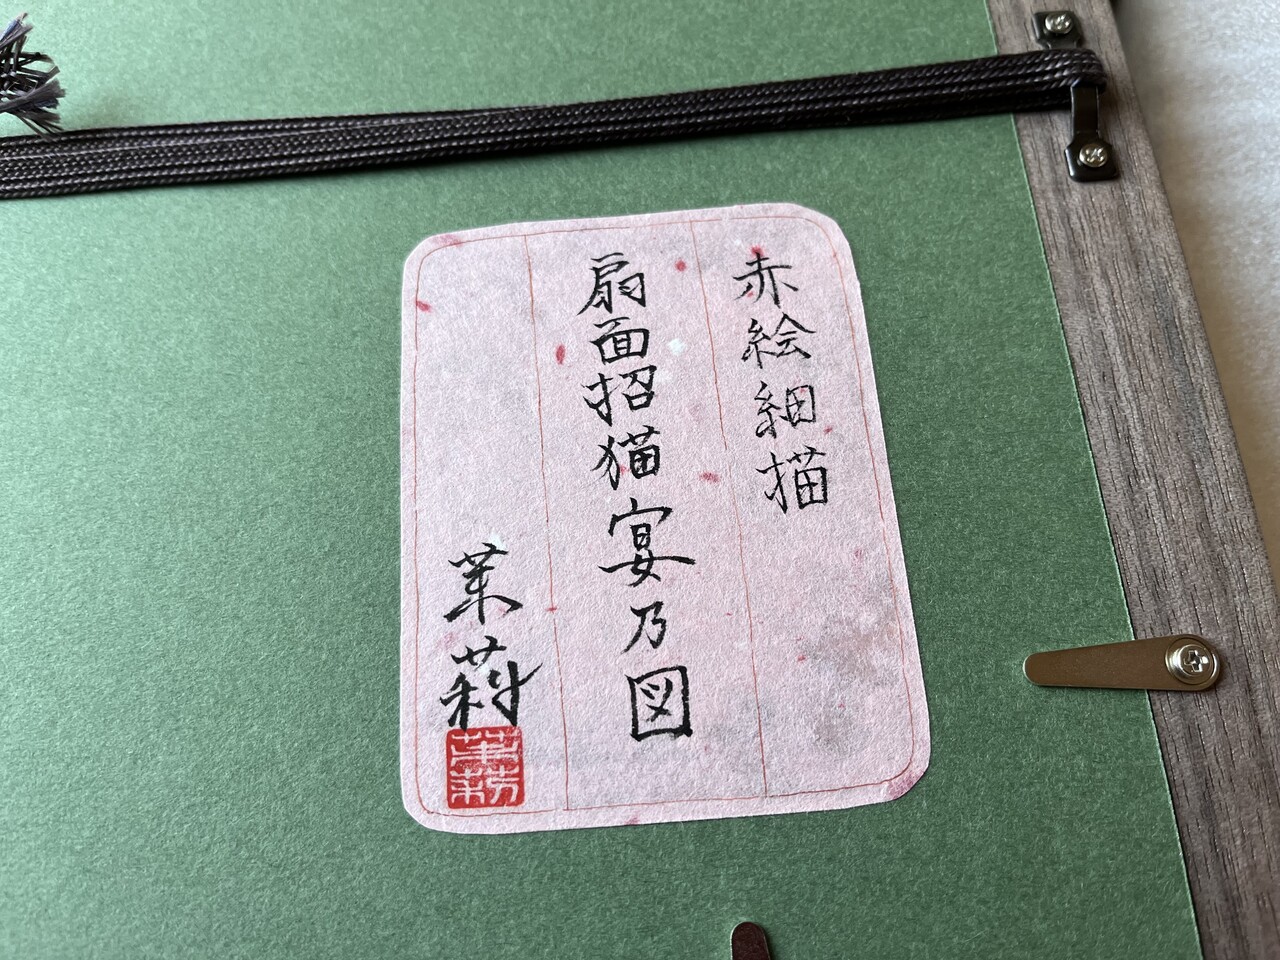 赤絵細描
扇面招猫宴乃図
茉莉